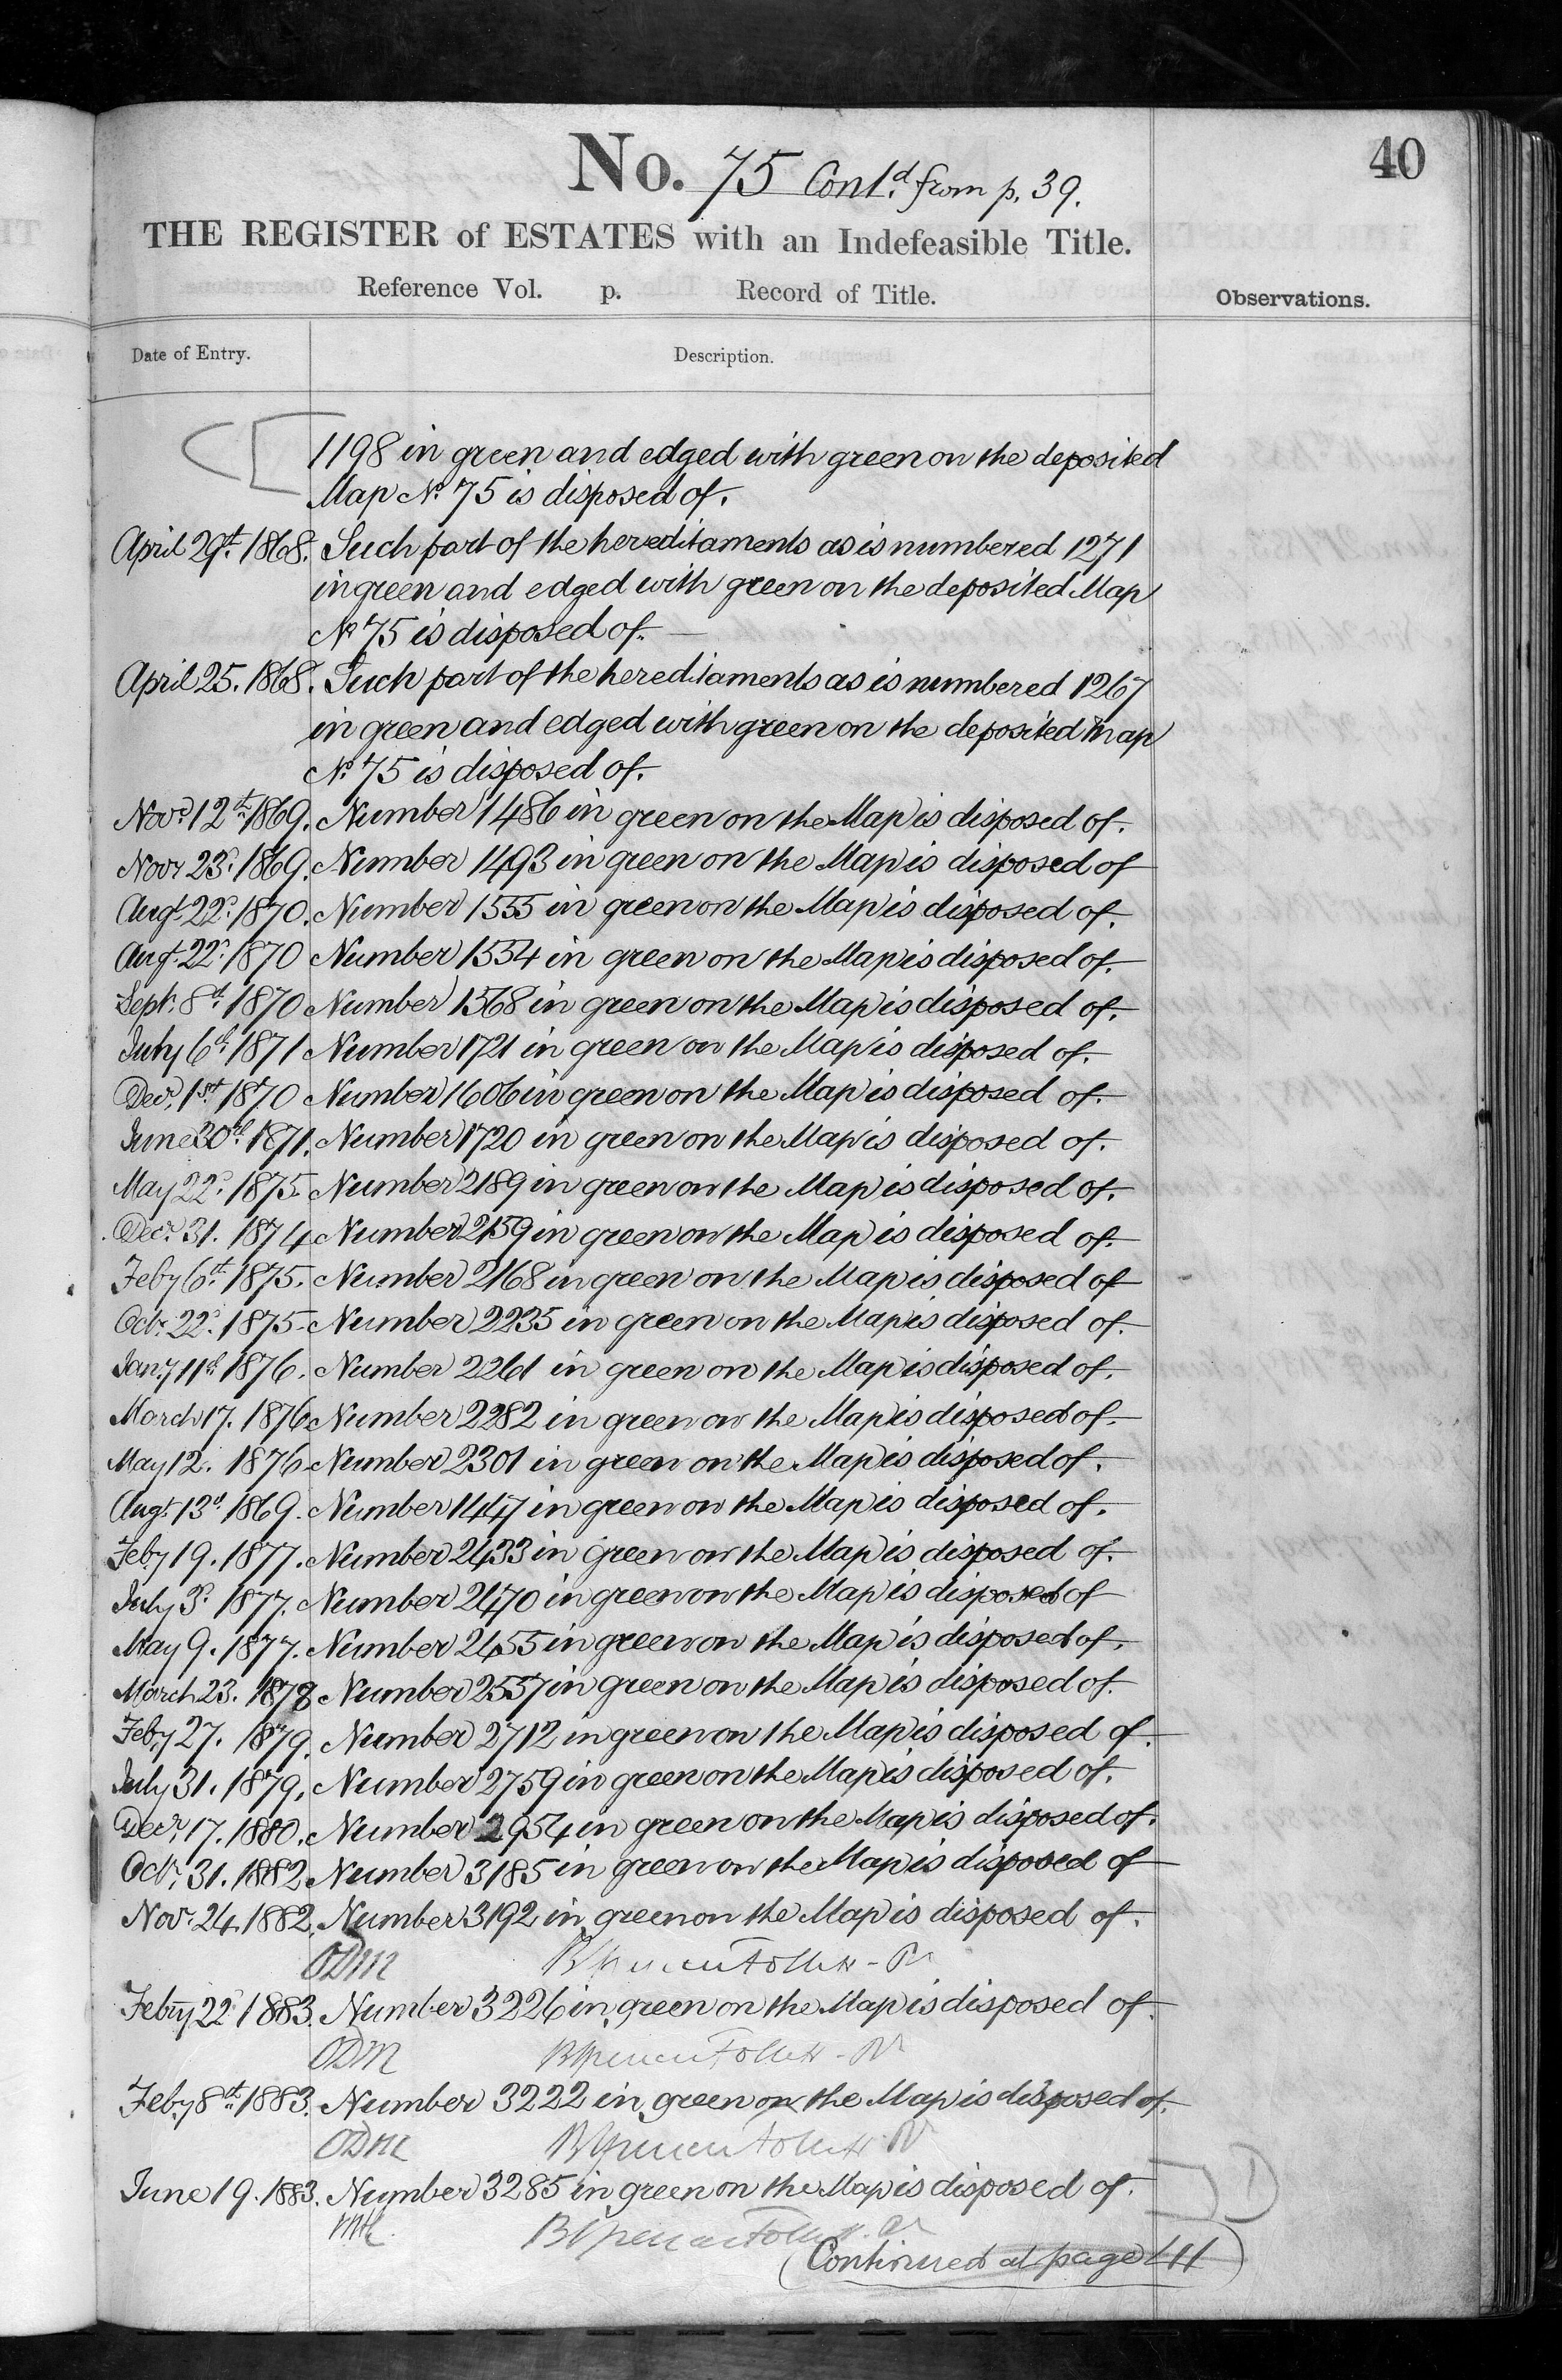 No. 75 Contd. from p. 39.
40
THE REGISTER of ESTATES with an Indefeasible Title.
Reference Vol. p. Record of Title.
Observations.
Date of Entry. Description.
1198 in green and edged with green on the deposited
Map No. 75 is disposed of.
April 29th. 1868. Such part of the hereditaments as is numbered 1271
in green and edged with green on the deposited Map
No 75 is disposed of.
April 25. 1868. Such part of the hereditaments as is numbered 1267
in green and edged with green on the deposited Map
No. 75 is disposed of.
Novr. 12th. 1869. Number 1486 in green on the Map is disposed of.
Novr 23d. 1869. Number 1493 in green on the Map is disposed of
Augt. 22d. 1870. Number 1555 in green on the Map is disposed of.
Augt. 22d. 1870 Number 1554 in green on the Map is disposed of.
Sept. 8th. 1870 Number 1568 in green on the Map is disposed of.
July 6th. 1871 Number 1721 in green on the Map is disposed of.
Decr. 1st. 1870 Number 1606 in green on the Map is disposed of.
June 30th. 1871. Number 1720 in green on the Map is disposed of.
May 22d. 1875. Number 2189 in green on the Map is disposed of.
Decr. 31. 1874 Number 2159 in green on the Map is disposed of.
Feby 6th. 1875. Number 2168 in green on the Map is disposed of
Octr. 22d. 1875. Number 2235 in green on the Map is disposed of.
Jany 11th. 1876. Number 2261 in green on the Map is disposed of.
March 17. 1876 Number 2282 in green on the Map is disposed of.
May 12. 1876 Number 2301 in green on the Map is disposed of.
Augt. 13th. 1869. Number 1447 in green on the Map is disposed of.
Feby 19. 1877. Number 2433 in green on the Map is disposed of.
July 3d. 1877. Number 2470 in green on the Map is disposed of
May 9. 1877. Number 2455 in green on the Map is disposed of.
March 23. 1878 Number 2557 in green on the Map is disposed of.
Feby 27. 1879. Number 2712 in green on the Map is disposed of.
July 31. 1879. Number 2759 in green on the Map is disposed of.
Decr. 17. 1880. Number 2954 in green on the Map is disposed of.
Octr. 31. 1882. Number 3185 in green on the Map is disposed of
Novr. 24. 1882. Number 3192 in green on the Map is disposed of.
ODM
Febry 22d 1883. Number 3226 in green on the Map is disposed of.
ODM
Feby 8th. 1883. Number 3222 in green on the Map is disposed of.
ODM
June 19. 1883. Number 3285 in green on the Map is disposed of.
(Continued at page 411)